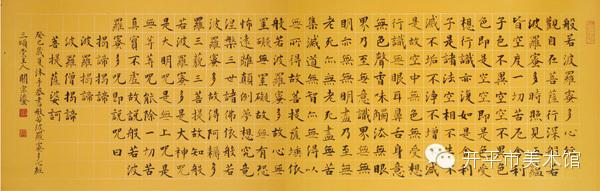 般若波羅蜜多心經
觀自在菩薩行深般若
波羅蜜多時照見五蘊
皆空度一切苦厄舍利
子色不異空空不異色
色即是空空即是色受
想行識亦復如是舍利
子是諸法空相不生不
滅不垢不淨不增不減
是故空中無色無受想
行識無眼耳鼻舌身意
無色聲香味觸法無眼
界乃至無意識界無無
明亦無無明盡乃至無
老死亦無老死盡無苦
集滅道無智亦無得以
無所得故菩提薩埵依
般若波羅蜜多故心無
罣礙無罣礙故無有恐
怖遠離顛倒夢想究竟
涅槃三世諸佛依般若
波羅蜜多故得阿耨多
羅三藐三菩提故知般
若波羅蜜多是大神咒
是大明咒是無上咒是
無等等咒能除一切苦
真實不虛故說般若波
羅蜜多咒即說咒曰
揭諦揭諦
波羅揭諦
波羅僧揭諦
菩提薩婆訶
癸巳歲夏沐手恭書般若波羅蜜多心經
三頌堂主人關宗
开平市美术馆